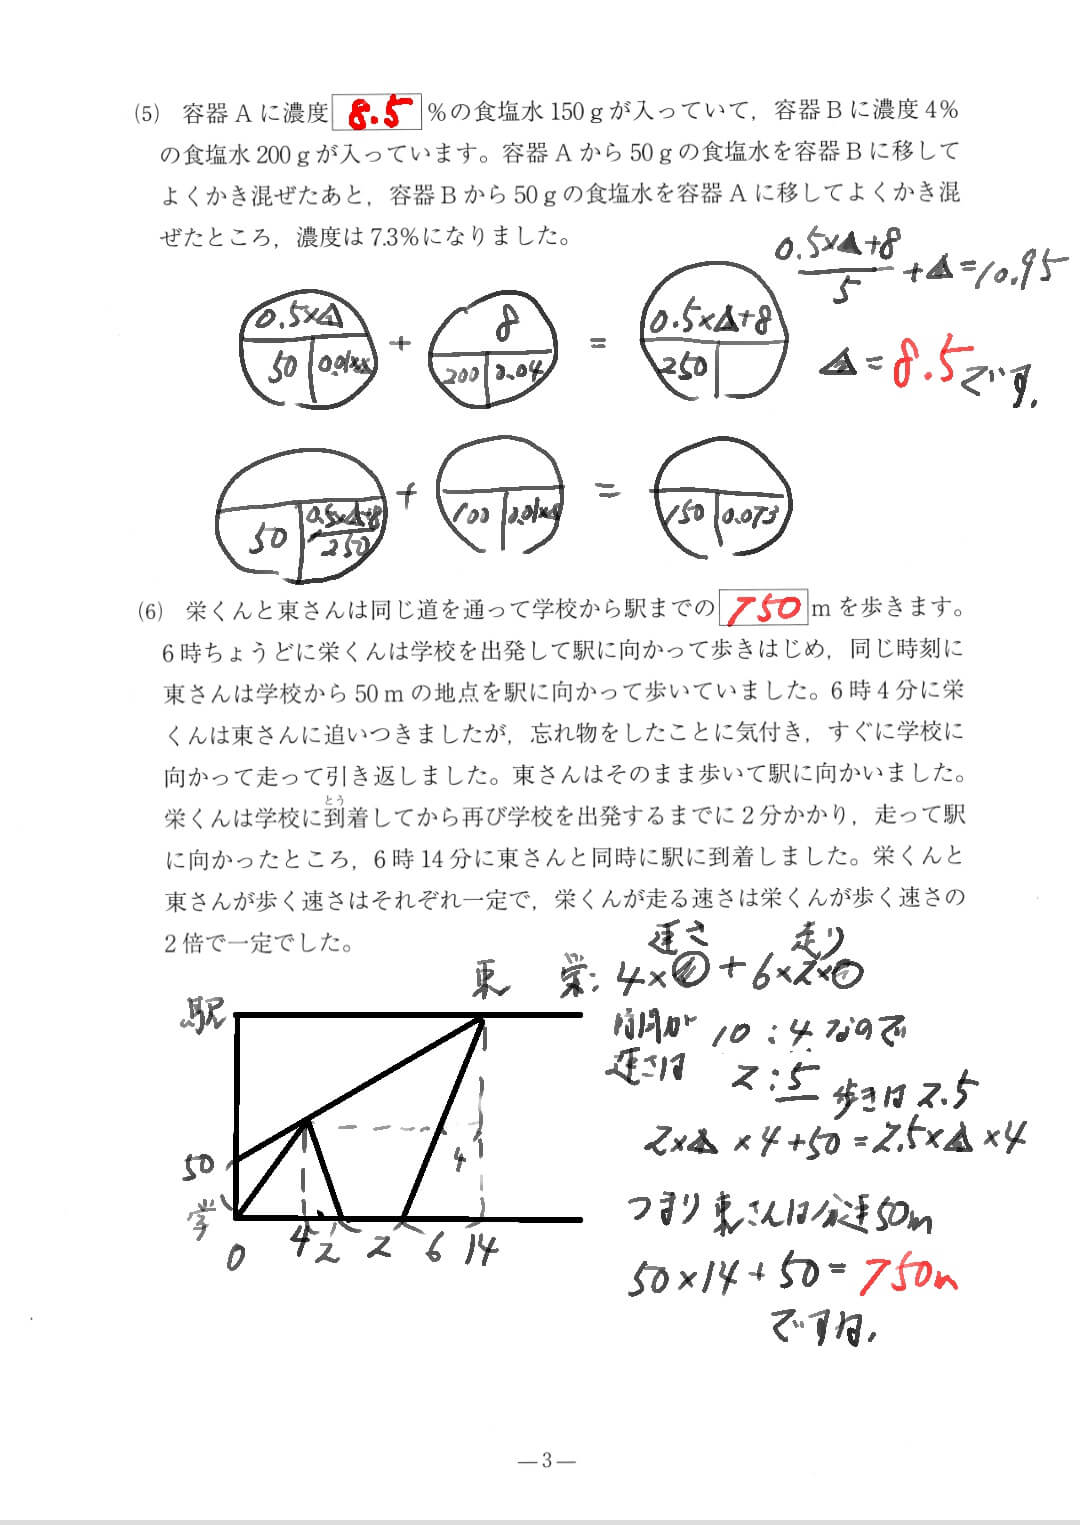 (5) 容器Aに濃度 8.5 %の食塩水150gが入っていて，容器Bに濃度4%
の食塩水200gが入っています。容器Aから50gの食塩水を容器Bに移して
よくかき混ぜたあと，容器Bから50gの食塩水を容器Aに移してよくかき混
ぜたところ，濃度は7.3%になりました。
0.5×△+8
5
+△=10.95
0.5×△
50
+
8
200 0.04
=
0.5×△+8
250
△=8.5です.
50
0.5×△+8
250
+
100 0.01×△
=
150 0.073
(6) 栄くんと東さんは同じ道を通って学校から駅までの 750 mを歩きます。
6時ちょうどに栄くんは学校を出発して駅に向かって歩きはじめ，同じ時刻に
東さんは学校から50mの地点を駅に向かって歩いていました。6時4分に栄
くんは東さんに追いつきましたが，忘れ物をしたことに気付き，すぐに学校に
向かって走って引き返しました。東さんはそのまま歩いて駅に向かいました。
とう
栄くんは学校に到着してから再び学校を出発するまでに2分かかり，走って駅
に向かったところ，6時14分に東さんと同時に駅に到着しました。栄くんと
東さんが歩く速さはそれぞれ一定で，栄くんが走る速さは栄くんが歩く速さの
2倍で一定でした。
速さ 走り
東 栄: 4× + 6×2×
駅
時間が 10:4なので
速さは 2:5 歩きは2.5
2×△×4+50=2.5×△×4
4
50
学
0 4 2 2 6 14
つまり東さんは分速50m
50×14+50=750m
ですね.
—3—